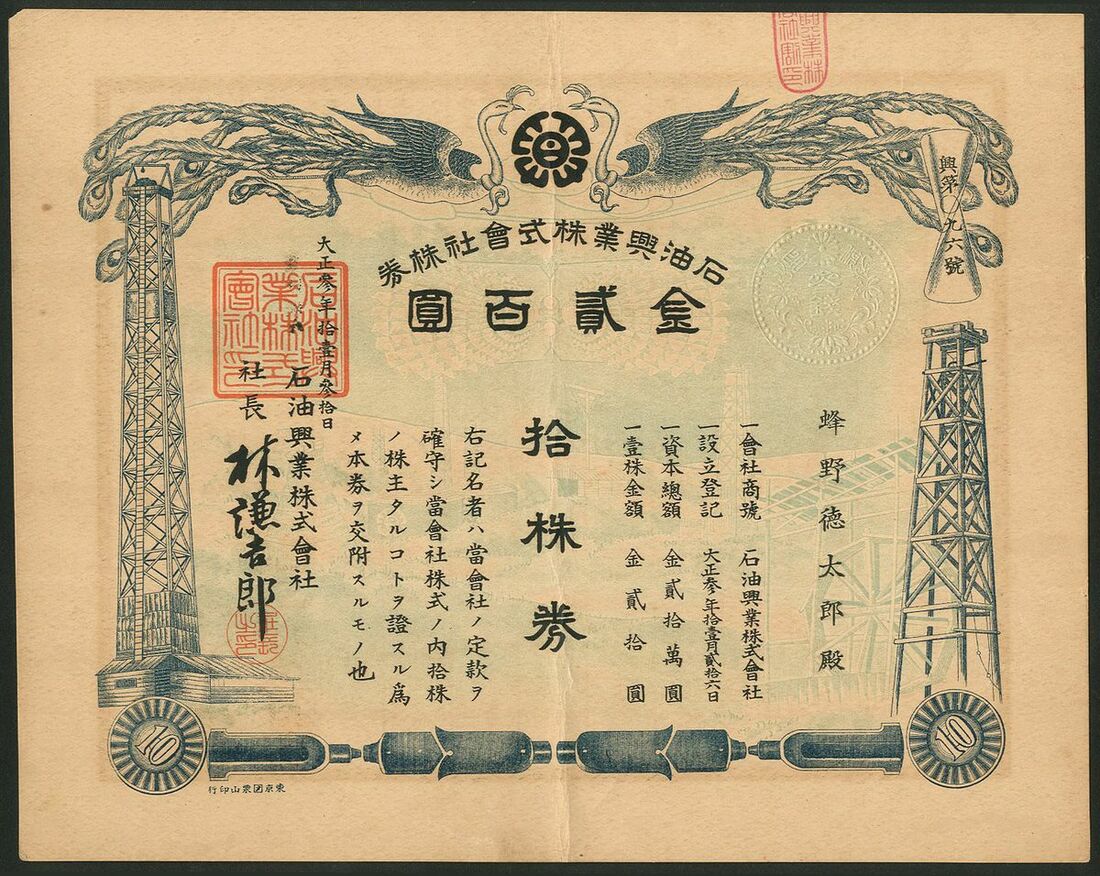 興第一九六號
石油興業株式會社株券
金貳百圓
拾株券
蜂野徳太郎殿
一會社商號 石油興業株式會社
一設立登記 大正參年拾壹月貳拾六日
一資本總額 金貳拾萬圓
一壹株金額 金貳拾圓
右記名者ハ當會社ノ定款ヲ
確守シ當會社株式ノ内拾株
ノ株主タルコトヲ證スル爲
メ本券ヲ交附スルモノ也
大正參年拾壹月參拾日
石油興業株式會社
社長 林謙吉郎
石油興業株式會社印
10
10